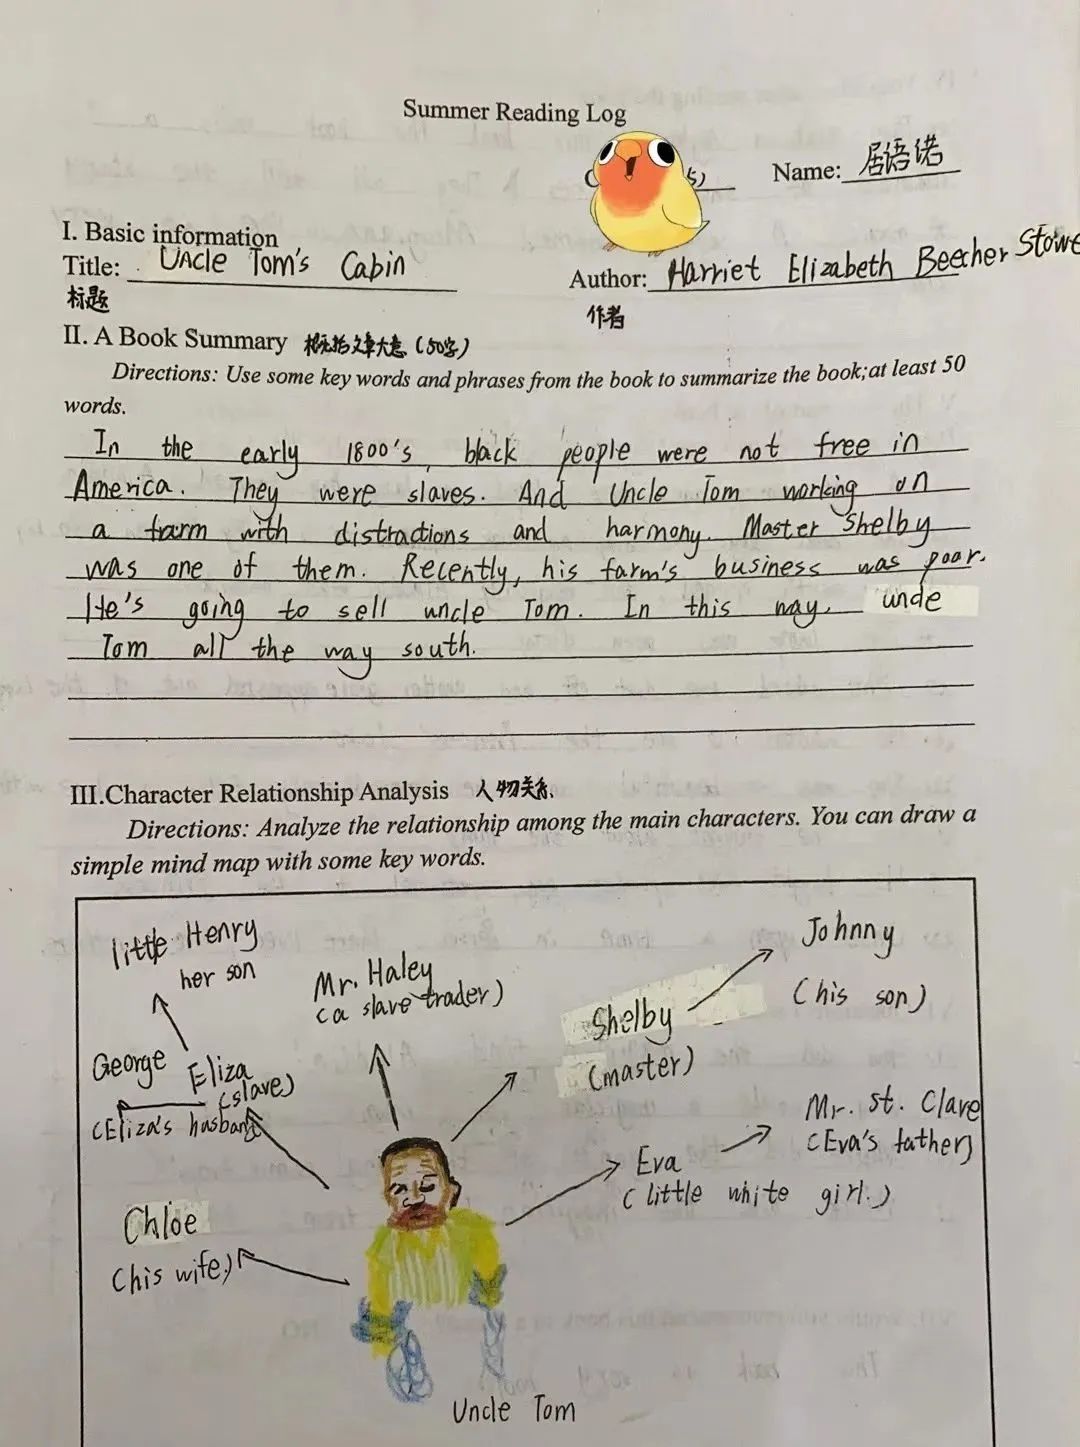 Summer Reading Log
5)
Name: 居语诺
I. Basic information
Title: Uncle Tom's Cabin
Author: Harriet Elizabeth Beecher Stowe
标题
作者
II. A Book Summary 概括文章大意(50字)
Directions: Use some key words and phrases from the book to summarize the book;at least 50
words.
In the early 1800's, black people were not free in
America. They were slaves. And Uncle Tom working on
a farm with distractions and harmony. Master Shelby
was one of them. Recently, his farm's business was poor.
He's going to sell uncle Tom. In this way, uncle
Tom all the way south.
III.Character Relationship Analysis 人物关系
Directions: Analyze the relationship among the main characters. You can draw a
simple mind map with some key words.
little Henry
her son
Mr. Haley
(a slave trader)
Shelby
(master)
Johnny
(his son)
George
Eliza
(slave)
(Eliza's husband)
Mr. St. Clare
(Eva's father)
Eva
(little white girl.)
Chloe
(his wife)
Uncle Tom